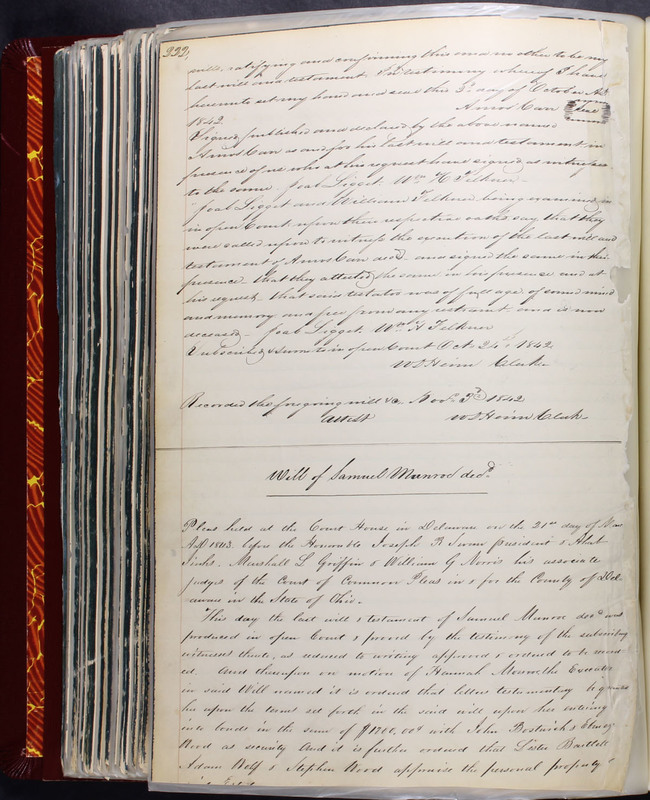 332,
will, ratifying and confirming this and no other to be my
last will and testament. In testimony whereof I have
hereunto set my hand and seal this 3d day of October AD
1842. Amos Carr Seal
Signed published and declared by the above named
Amos Carr as and for his last will and testament in
presence of us who at his request have signed as witnesses
to the same. Joab Ligget. Wm H Felkner
Joab Ligget and William Felkner being examined in
in open Court upon their respective oaths say that they
were called upon to witness the execution of the last will and
testament of Amos Carr decd. and signed the same in his
presence that they attested the same in his presence and at
his request, that said testator was of full age of sound mind
and memory and free from any restraint. and is now
deceased - Joab Ligget. Wm H Felkner
Subscribed & sworn to in open Court Oct. 24th 1842
W D Heim Clerk
Recorded the foregoing will &c Nov. 3d 1842
attest W D Heim Clerk
Will of Samuel Munroe decd.
Pleas held at the Court House in Delaware on the 21st day of
AD 1843. before the Honorable Joseph R Swan president &
Marshall L Griffin & William G Norris his associate
judges of the Court of Common Pleas in & for the County of Del-
aware in the State of Ohio.
This day the last will & testament of Samuel Munroe decd was
produced in open Court & proved by the testimony of the subscribing
witnesses thereto, as reduced to writing approved & ordered to be record
ed. And thereupon on motion of Hannah Executor
in said Will named it is ordered that letters testamentary be grant
her upon the terms set forth in the said will upon her entering
into bonds in the sum of $1200,00 with John Bostwick &
Wood as security And it is further ordered that Lester Bartlett
Adam Wolf & Stephen Wood appraise the personal property